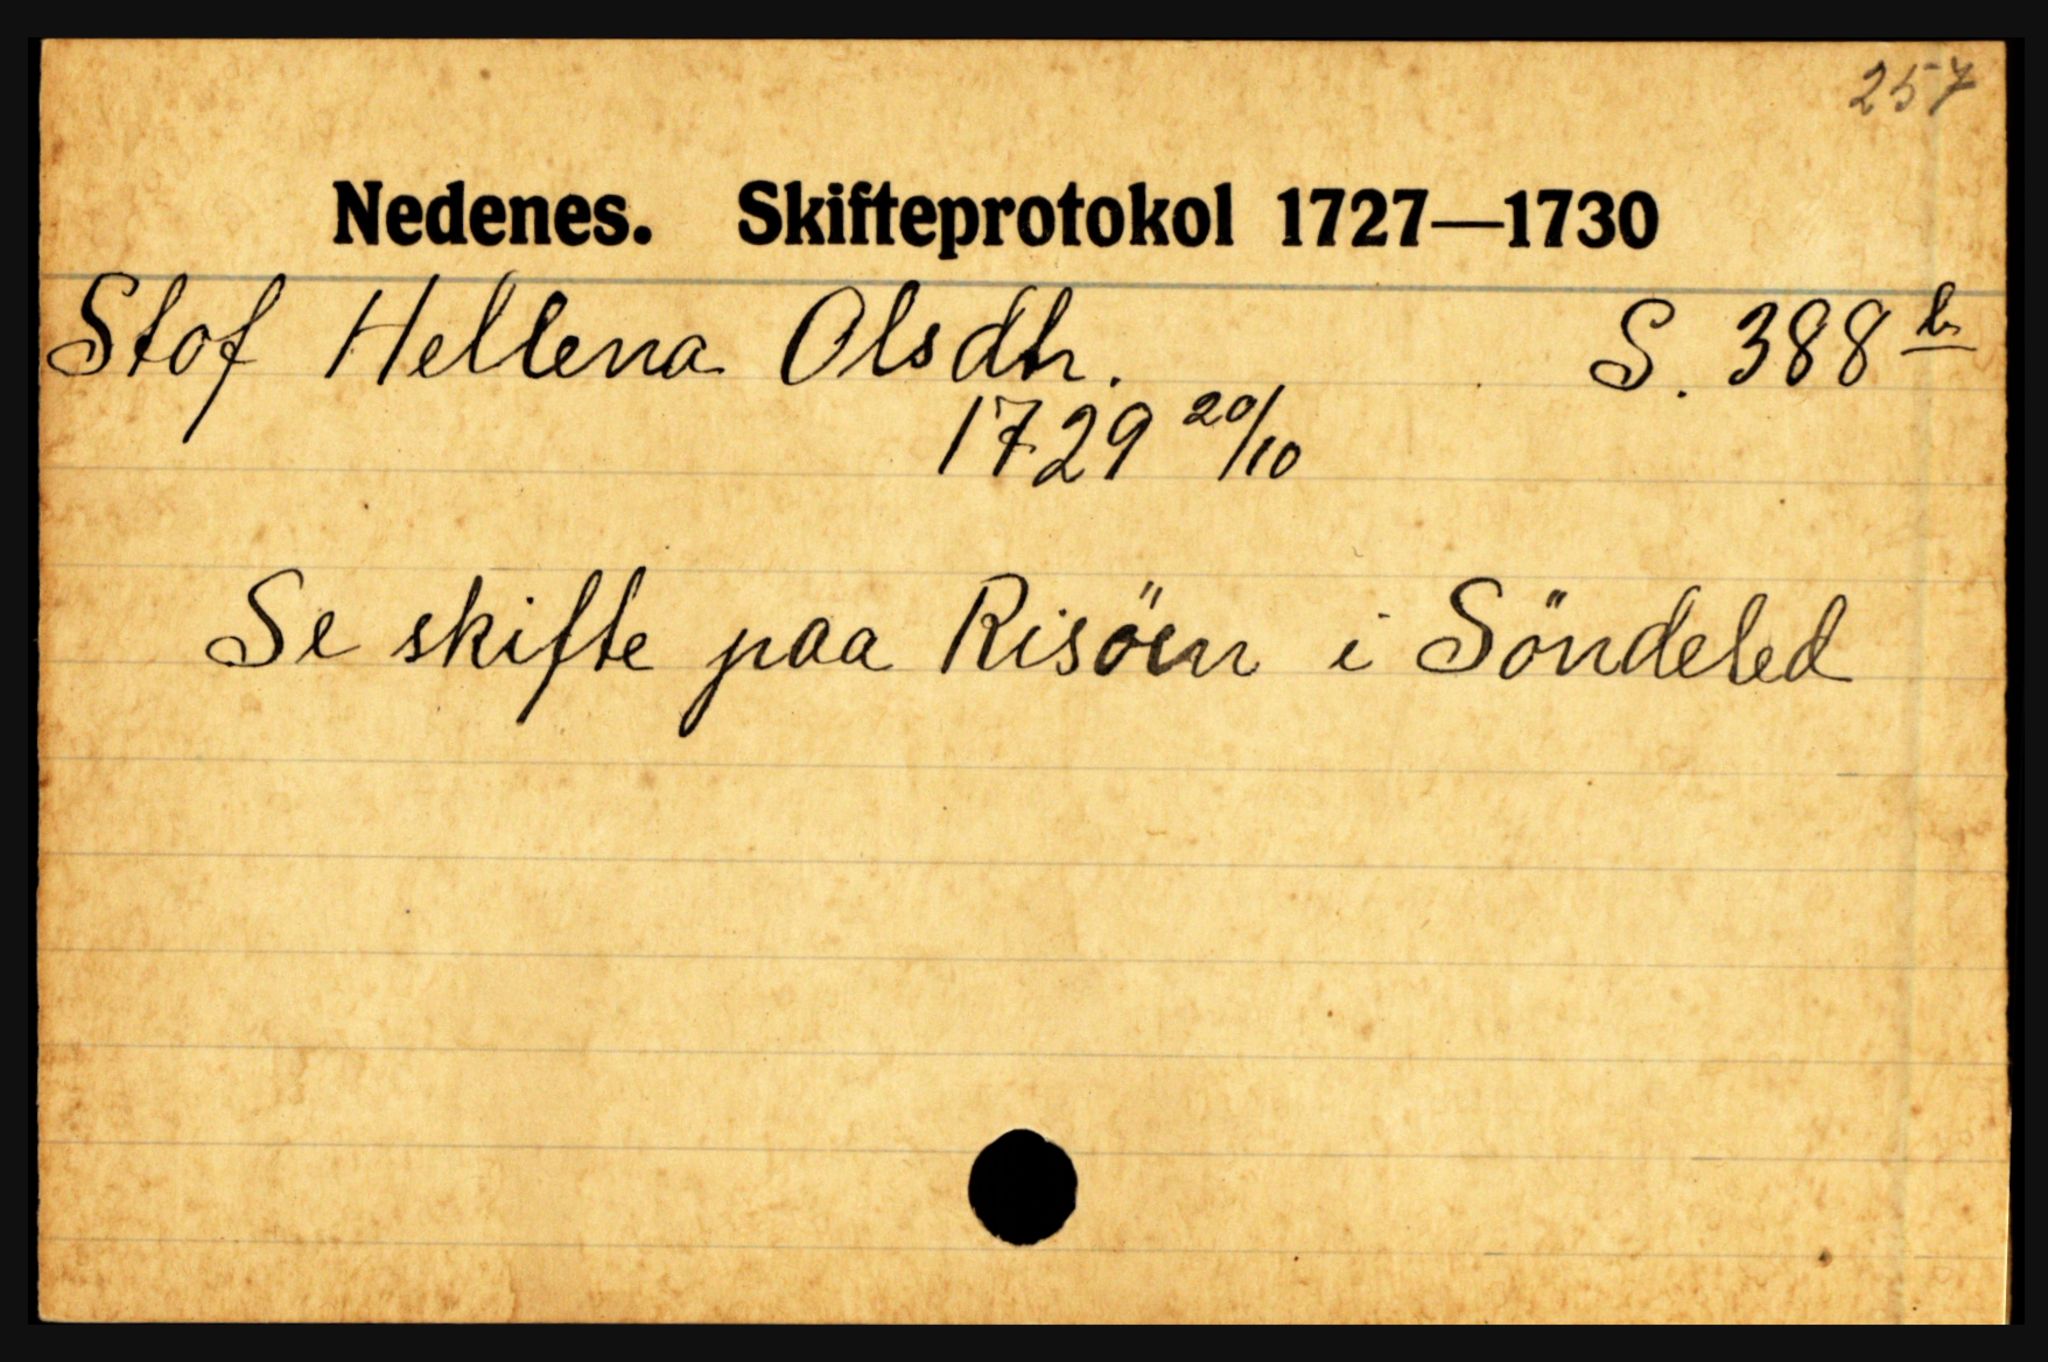 257
Nedenes. Skifteprotokol 1727—1730
Stof Hellena Olsdtr. S. 388 b
1729 20/10
Se skifte paa Risöen i Söndeled